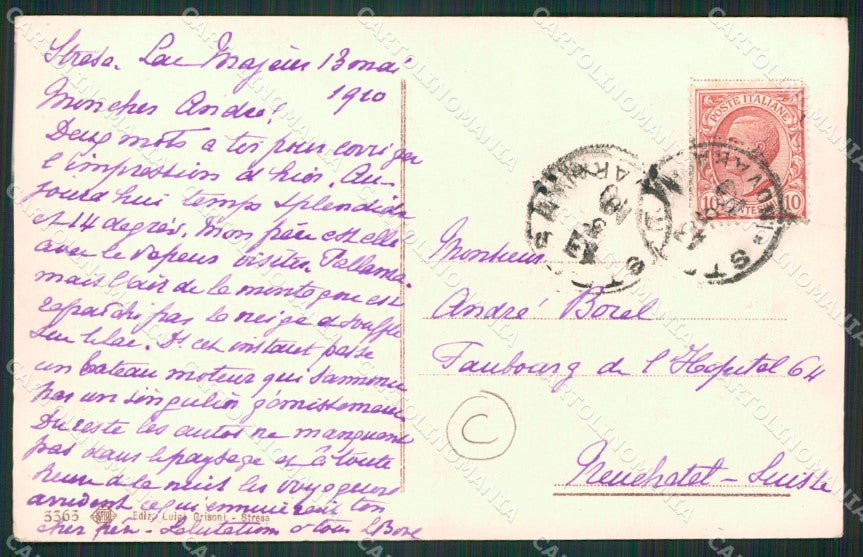 Stresa. Lac Majeur 13 mai
1910
Mon cher André!
Deux mots a toi pour corriger
l'impression d'hier. Au-
jourd'hui temps splendide
et 14 degrés. Mon père est allé
avec le vapeur visiter Pallanza
mais l'air de la montagne est
refraichi par la neige et souffle
sur le lac. En cet instant passe
un bateau moteur qui s'annonce
par un singulier gémissement
Du reste les autos ne manquent
pas dans le paysage et à toute
heure de la nuit les voyageurs
arrivent ce qui ennuierait ton
cher père. Salutations à tous le Bore
3363 Ediz. Luigi Grisoni - Stresa
POSTE ITALIANE
10 CENTES. 10
13
10
Monsieur
André Borel
Faubourg de l'Hopital 64
Neuchatel - Suisse
C
CARTOLINOMANIA